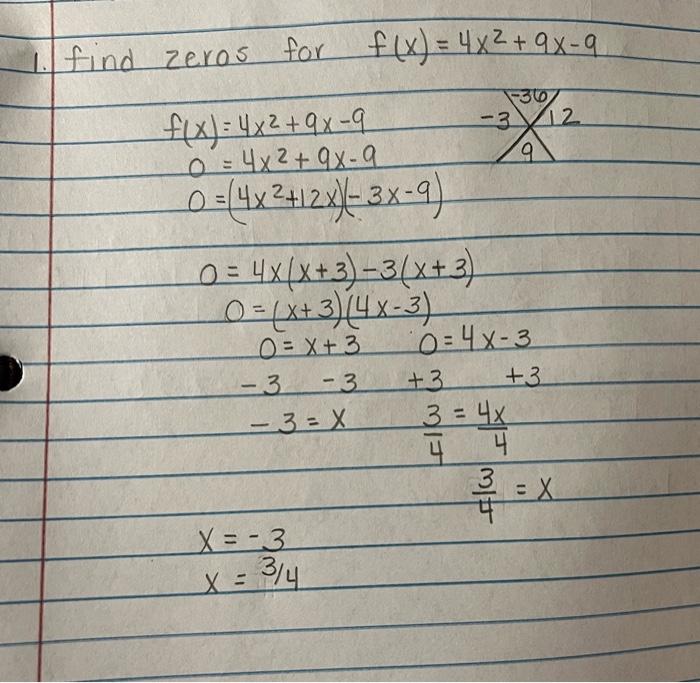 1. find zeros for f(x) = 4x² + 9x - 9
-36
-3 12
9
f(x) = 4x² + 9x - 9
0 = 4x² + 9x - 9
0 = (4x² + 12x)(- 3x - 9)
0 = 4x(x + 3) - 3(x + 3)
0 = (x + 3)(4x - 3)
0 = x + 3 0 = 4x - 3
- 3 - 3 + 3 + 3
- 3 = x 3/4 = 4x/4
3/4 = x
x = - 3
x = 3/4